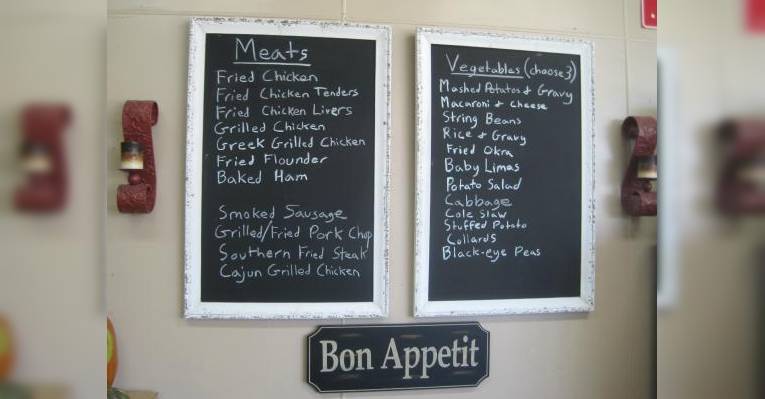 Meats
Fried Chicken
Fried Chicken Tenders
Fried Chicken Livers
Grilled Chicken
Greek Grilled Chicken
Fried Flounder
Baked Ham
Smoked Sausage
Grilled/Fried Pork Chop
Southern Fried Steak
Cajun Grilled Chicken
Vegetables (choose 3)
Mashed Potatos & Gravy
Macaroni & Cheese
String Beans
Rice & Gravy
Fried Okra
Baby Limas
Potato Salad
Cabbage
Cole Slaw
Stuffed Potato
Collards
Black-eye Peas
Bon Appetit